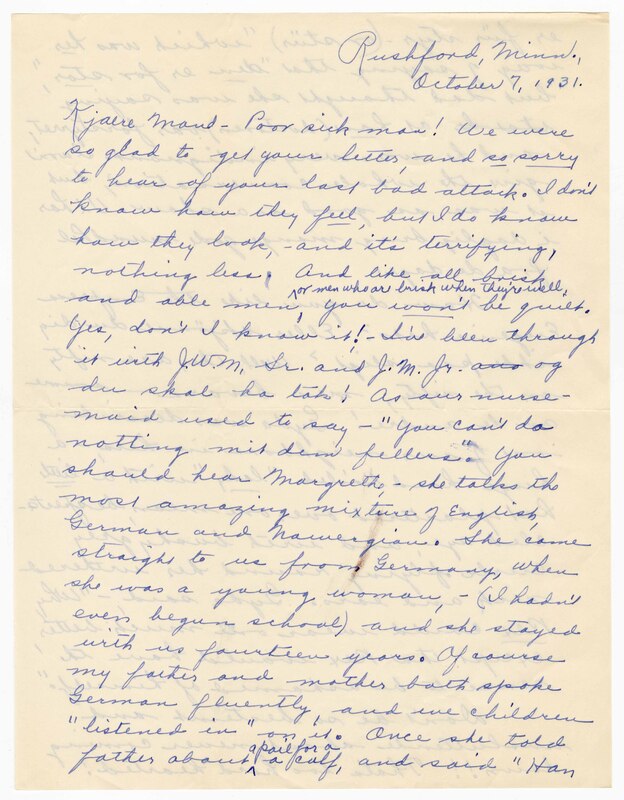 Rushford, Minn.,
October 7, 1931.
Kjaere Mand - Poor sick man! We were
so glad to get your letter, and so sorry
to hear of your last bad attack. I don't
know how they feel, but I do know
how they look, - and it's terrifying,
nothing less. And like all brisk
or men who are brisk when they're well,
and able men, you won't be quiet.
Yes, don't I know it! - I've been through
it with J.W.M. Sr. and J.M. Jr. ano og
du skal ha tak! As our nurse-
maid used to say - "You can't do
notting mit dem fellers". You
should hear Margrethe, - she talks the
most amazing mixture of English,
German and Nawergian. She came
straight to us from Germany, when
she was a young woman, - (I hadn't
even begun school) and she stayed
with us fourteen years. Of course
my father and mother both spoke
German fluently, and we children
"listened in" on it. Once she told
a pail for a
father about a calf, and said "Han